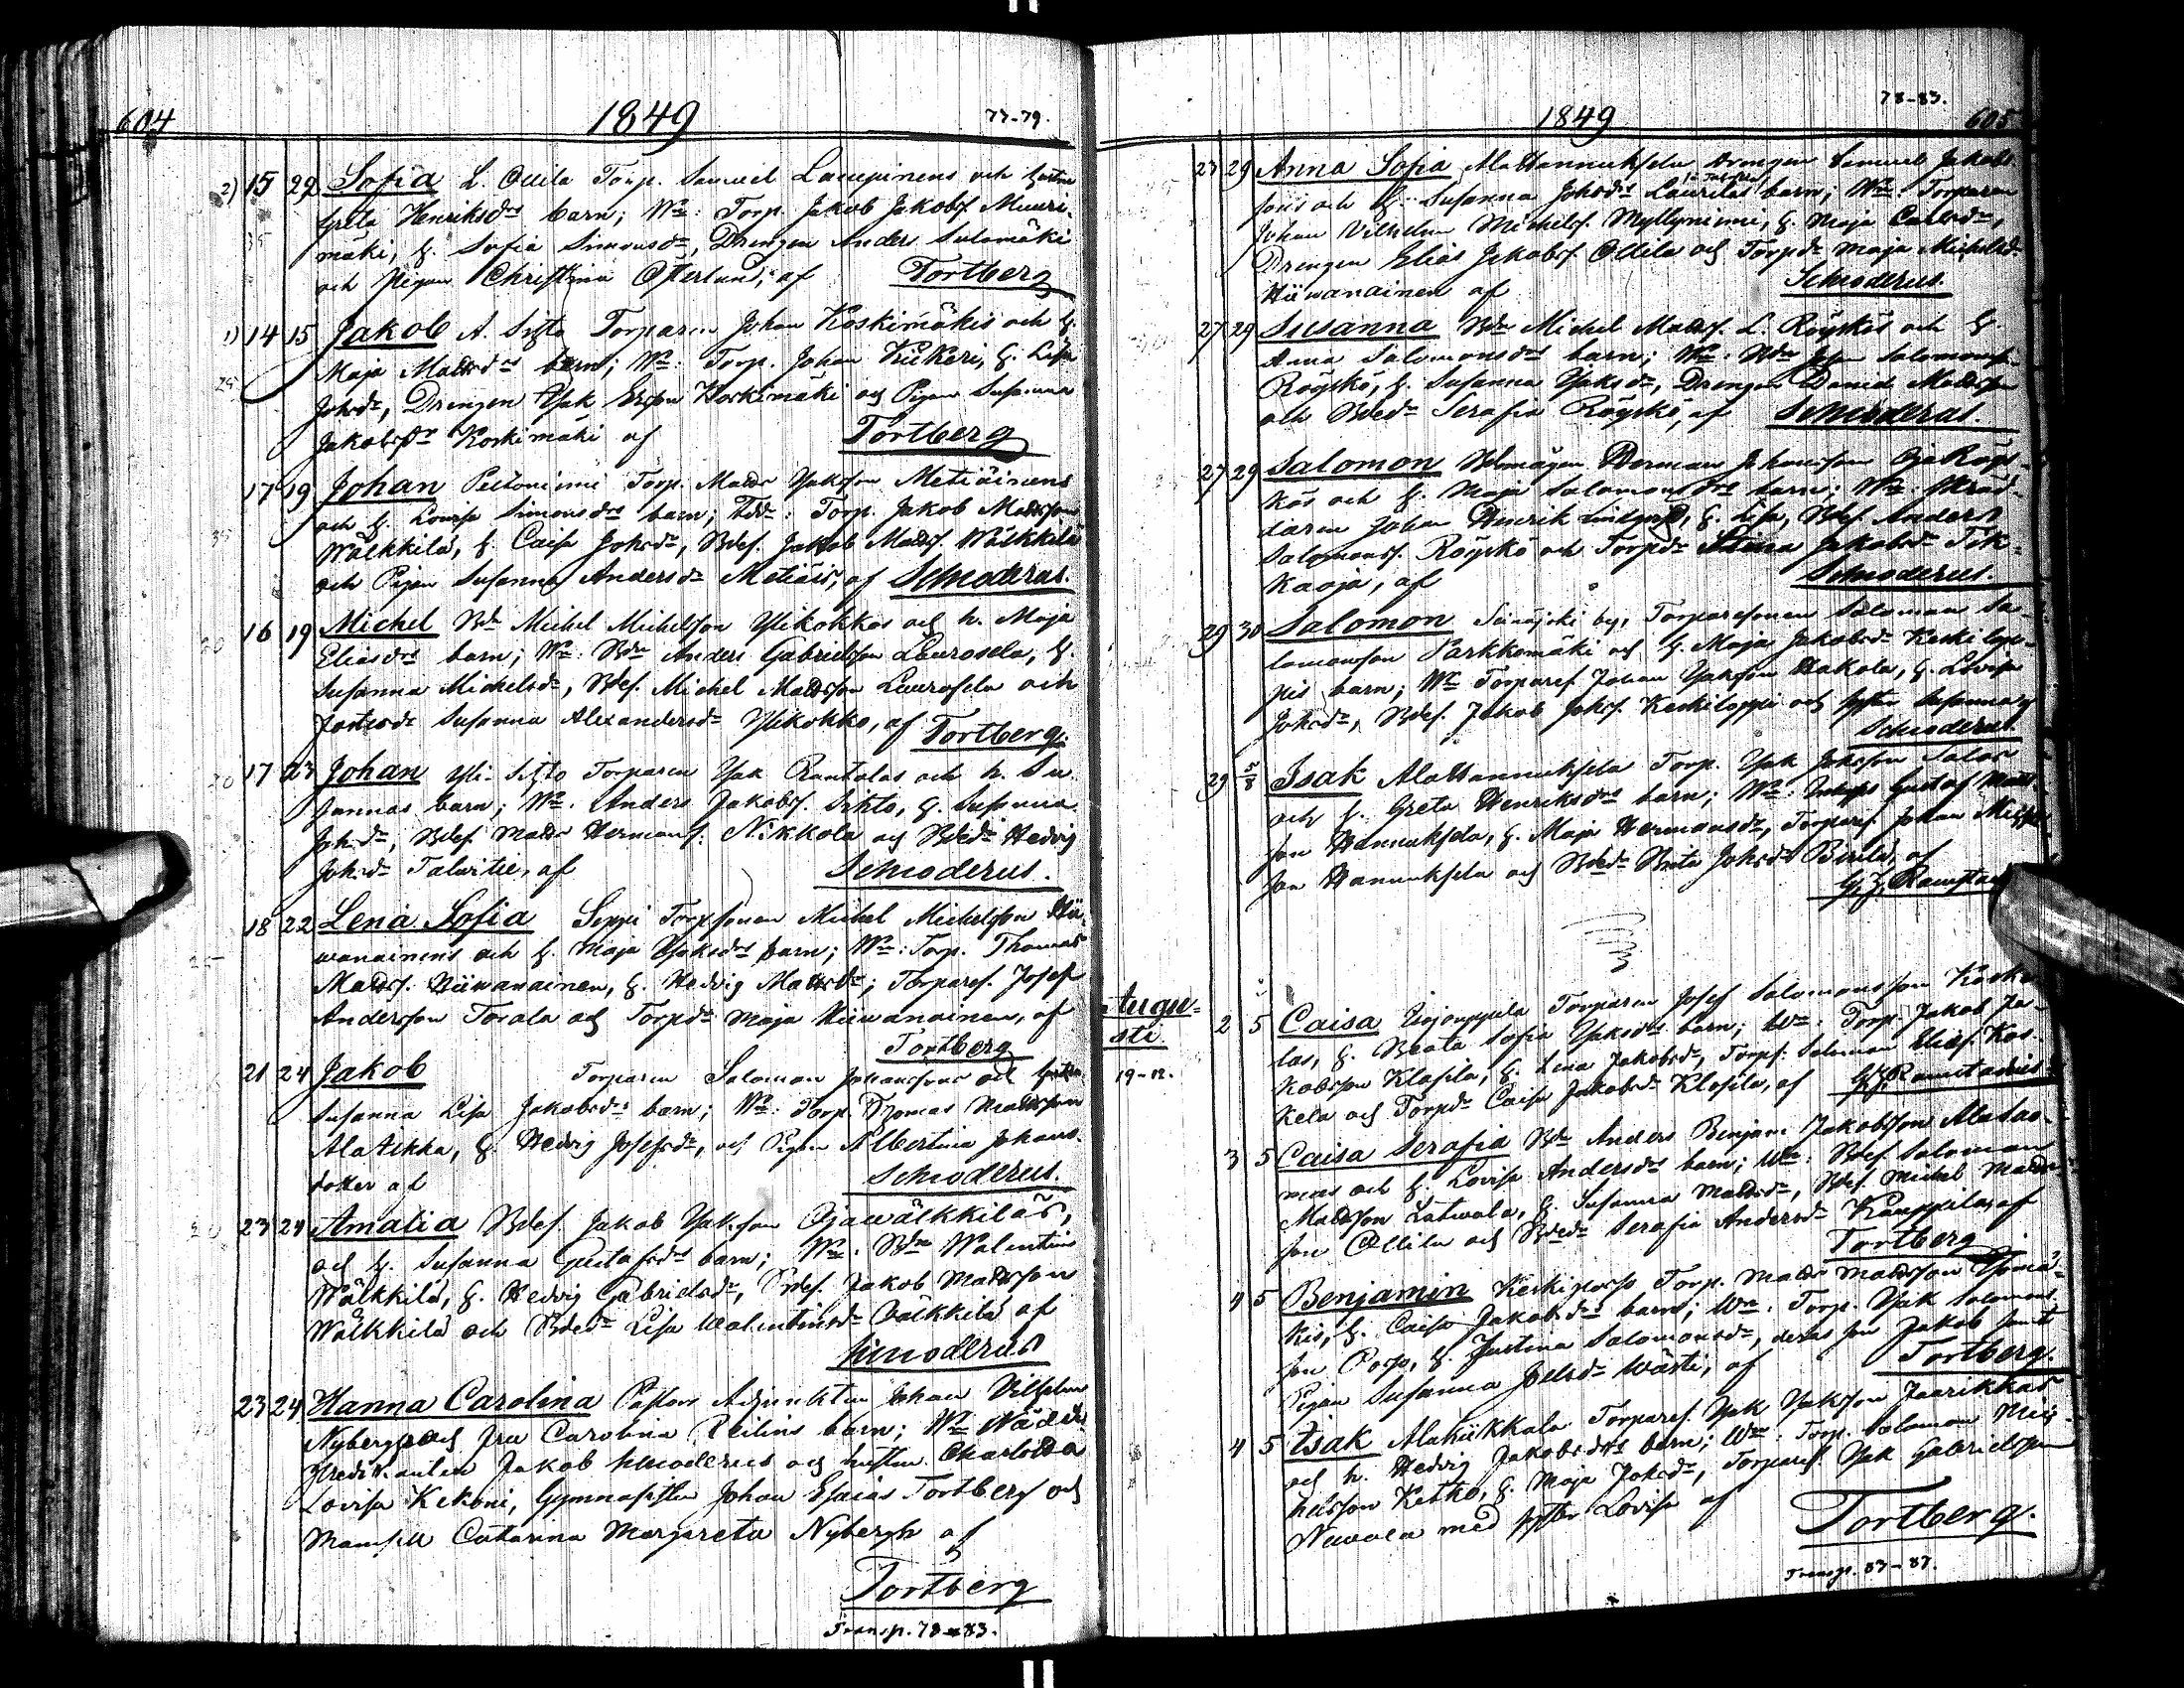 604 1849 77-79.
2) 15 22 Sofia L. Ollila Torp. Samuel Lampinens och hustru
Greta Henriksdrs barn; Wn: Torp. Jakob Jakobs. Muuri-
mäki, h. Sofia Simonsdr, Drengen Ander Salomäki
och Pigan Christina Österlund, af Tortberg
1) 14 15 Jakob A. Sihto Torparen Johan Koskimäkis och h.
Maja Mattsdrs barn; Wn: Torp. Johan Kiikeri, h. Lisa
Johsdr, Drengen Isak Koskimäki och Pigan Susanna
Jakobsdr Koskimäki af Tortberg
17 19 Johan Peltoniemi Torp. Matts Isaksson Metiäinens
och h. Lovisa Simonsdrs barn; Torp. Jakob Mattsson
Wälkkilä, h. Caisa Johsdr, Bdes. Jakob Matts. Wälkkilä
och Pigan Susanna Andersdr Metiäis, af Schroderus.
16 19 Michel Bdn Michel Michelsson Ylikokkos och h. Maja
Eliasdrs barn; Wn: Bdn Anders Gabrielsson Laurosela, h.
Susanna Michelsdr, Bdes. Michel Mattsson Laurosela och
Susanna Alexandersdr Ylikokko, af Tortberg.
17 23 Johan Yli-Sihto Torparen Isak Rantalas och h. Su-
sannas barn; Wn. Anders Jakobs. Sihto, h. Susanna
Johsdr, Bdes. Matts Hermans. Nikkola och Bdedr Hedvig
Johsdr Talvitie, af Schroderus.
18 22 Lena Sofia Seppi Torpsonen Michel Michelsson Hii-
wanainens och h. Maja Isaksdrs barn; Wn: Torp. Thomas
Matts. Hiiwanainen, h. Hedvig Mattsdr; Torpares. Josef
Andersson Torala och Torpdr Maja Hiiwanainen, af
Tortberg
21 24 Jakob Torparen Salomon Johanssons och hustru
Susanna Lisa Jakobsdrs barn; Wn: Torp. Thomas Mattsson
Alatikka, h. Hedvig Josefsdr, och Pigan Albertina Johans-
dotter af Schroderus.
23 24 Amalia Bdes. Jakob Isaksson Ojawälkkiläs,
och h. Susanna Gustafsdrs barn; Wn: Bdn Walentin
Wälkkilä, h. Hedvig Gabrielsdr, Bdes. Jakob Mattsson
Wälkkilä och Bdedr Lisa Walentinsdr Wälkkilä af
Schroderus
23 24 Hanna Carolina Pastors Adjunkten Johan Vilhelm
Nyberghs och fru Carolina Reilins barn; Wn
Jakob Schroderus och hustru Charlotta
Lovisa Kekoni, Gymnasisten Johan Esaias Tortberg och
Mamsell Catarina Margareta Nybergh af
Tortberg
Transp. 78-83.
1849 78-83. 605
23 29 Anna Sofia AlaHannuksela Drengen Samuel Jakobs-
sons och h. Susanna Johsdrs Laurilas barn; Wn: Torparen
Johan Vilhelm Michels. Myllyniemi, h. Maja
Drengen Elias Jakobs. Ollila och Torpdr Maja Michelsdr
Hiiwanainen af Schroderus.
27 29 Susanna Bdn Michel Matts. L. Röyskös och h.
Anna Salomonsdrs barn; Wn: Bdn Johan Salomons.
Röyskö, h. Susanna Isaksdr, Drengen Daniel Mattsson
och Bdedr Serafia Röyskö, af Schroderus.
27 29 Salomon Bdemågen Herman Johansson Oja Röys-
kös och h. Maja Salomonsdrs barn; Wn: Skräd-
daren Johan Henrik Lindqvist, h. Lisa, Bdes. Anders
Salomons. Röyskö och Torpdr Jakobsdr Tik-
kaoja, af Schroderus.
29 30 Salomon Seinäjoki by, Torparesonen Salomon Sa-
lomonsson Parkkomäki och h. Maja Jakobsdr Keskilop-
pis barn; Wn Torpares. Johan Isaksson Hakola, h. Lovisa
Johsdr, Bdes. Jakob Johs. Keskiloppi och syster Susanna af
Schroderus.
29 5/8 Isak AlaHannuksela Torp. Isak Johsson Salos
och h. Greta Henriksdrs barn; Wn: Gustaf Matts-
son Hannuksela, h. Maja Hermansdr, Torpares. Johan
son Hannuksela och Bdedr Brita Johsdr af
G. Z. Ramstadius
Augu-
sti.
19-12.
2 5 Caisa Torparen Josef Salomonsson Koske-
las, h. Beata Sofia Isaksdrs barn; Wn: Torp. Jakob Ja-
kobsson Klasila, h. Lena Jakobsdr, Torps. Salomon Elias. Kos-
kela och Torpdr Caisa Jakobsdr Klasila, af G. Z. Ramstadius
3 5 Caisa Serafia Bdn Anders Benjam. Jakobsson AlaSao-
mas och h. Lovisa Andersdrs barn; Wn: Bdes Salomon
Mattsson Latwala, h. Susanna Mattsdr, Bdes. Michel Matts-
son Ollila och Bdedr Serafia Andersdr Kauppila, af
Tortberg
4 5 Benjamin Keskiporho Torp. Matts Mattsson
kis, h. Caisa Jakobsdrs barn; Wn: Torp. Isak Salomons-
son Porho, h. Justina Salomonsdr, deras son Jakob samt
Pigan Susanna Joelsdr Wästi, af Tortberg.
4 5 Isak Alahiikkala Torpares. Isak Isaksson Jaarikkas
och h. Hedvig Jakobsdrs barn; Wn: Torp. Salomon Mic-
helsson Ketko, h. Maja Johsdr, Torpares. Isak Gabrielsson
Nevala med syster Lovisa af
Tortberg.
Transp. 83-87.